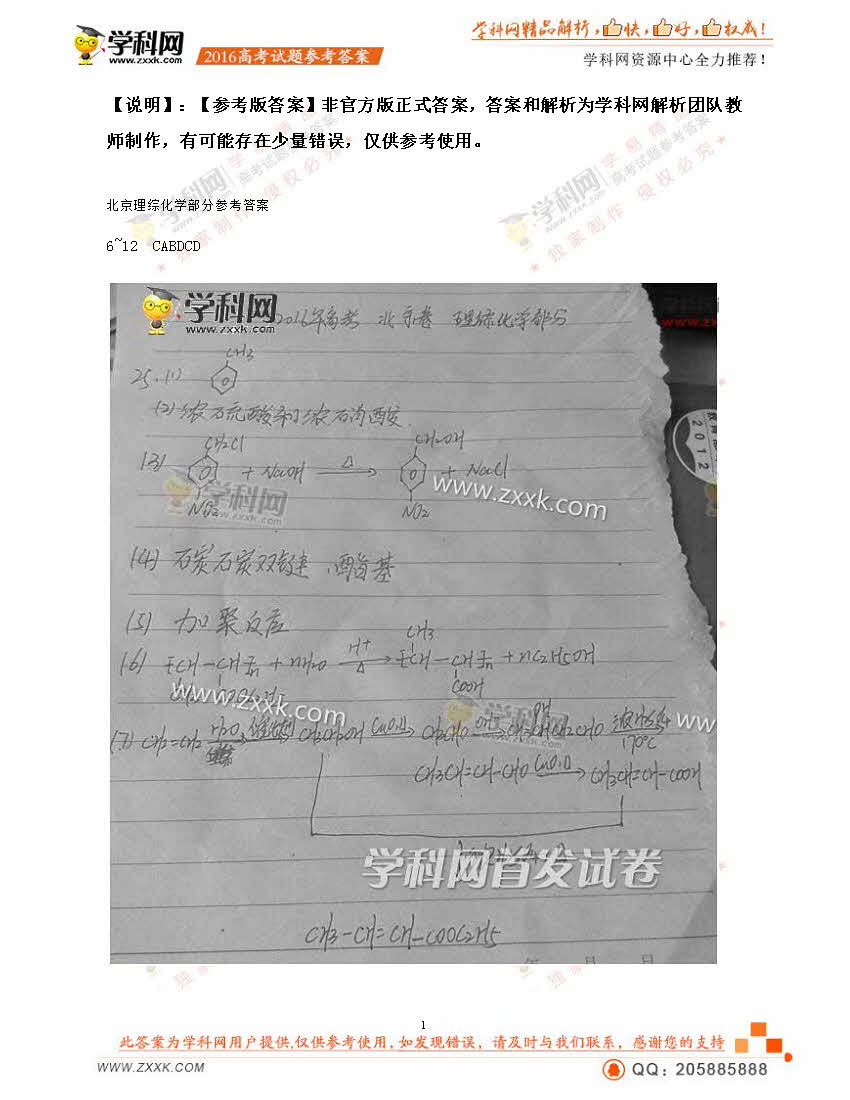 学科网
www.zxxk.com
2016高考试题参考答案
学科网精品解析，快，好，权威！
学科网资源中心全力推荐！
【说明】：【参考版答案】非官方版正式答案，答案和解析为学科网解析团队教
师制作，有可能存在少量错误，仅供参考使用。
北京理综化学部分参考答案
6~12 CABDCD
学科网
www.zxxk.com
2016年高考 北京卷 理综化学部分
CH3
25.(1)
(2) 浓硫酸和浓硝酸
CH2Cl CH2OH
(3) + NaOH △ + NaCl
NO2 NO2
www.zxxk.com
学科网
www.zxxk.com
2012
(4) 碳碳双键、酯基
(5) 加聚反应
CH3
(6) [CH—CH]n + nH2O H+ △ [CH—CH]n + nC2H5OH
COOH
www.zxxk.com
www.zx
OH
(7) CH2=CH2 H2O 催化剂 CH3CH2OH CuO,△ CH3CHO OH- CH3CHCH2CHO 浓H2SO4 170℃
CH3CH=CH-CHO CuO,△ CH3CH=CH-COOH
学科网首发试卷
CH3-CH=CH-COOC2H5
1
此答案为学科网用户提供,仅供参考使用,如发现错误，请及时与我们联系，感谢您的支持
WWW.ZXXK.COM
QQ：205885888